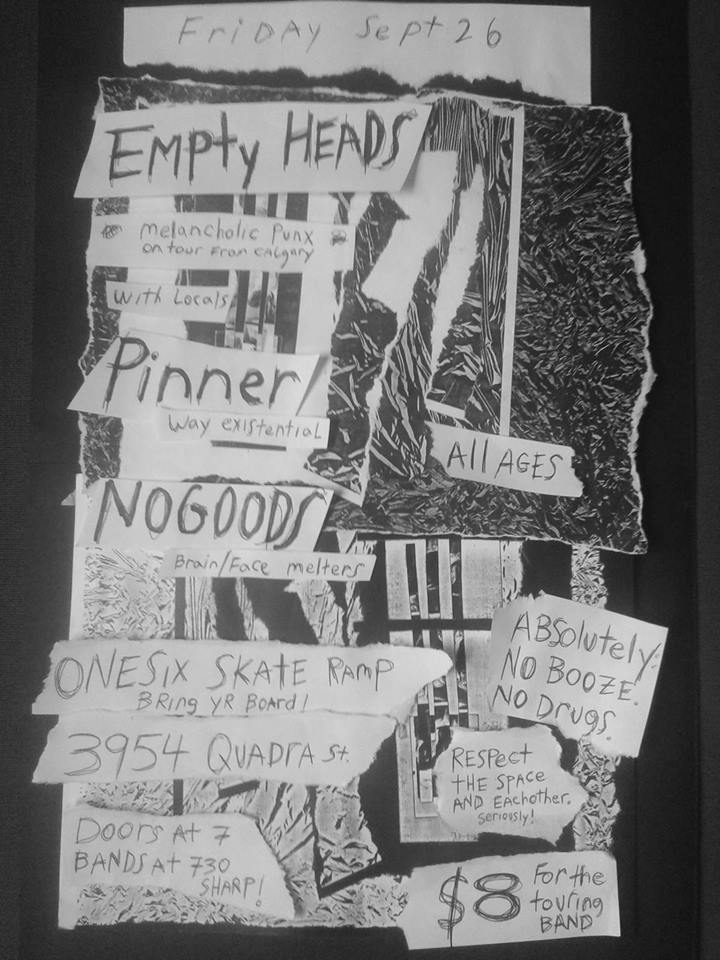 FriDAY Sept 26
EMPty HEADS
melancholic Punx
on tour From CAlgary
with Locals
Pinner
Way existential
All AGES
NOGOODS
Brain/Face melters
ONESix SKATE RAmp
BRing YR BoArd!
3954 QUADRA St.
ABSolutely
NO BOOZE.
NO DruGS.
RESPect
tHE SPACE
AND EAchother.
Seriously!
DOORS At 7
BANDS At 730
SHARP!
$8 For the
touring
BAND